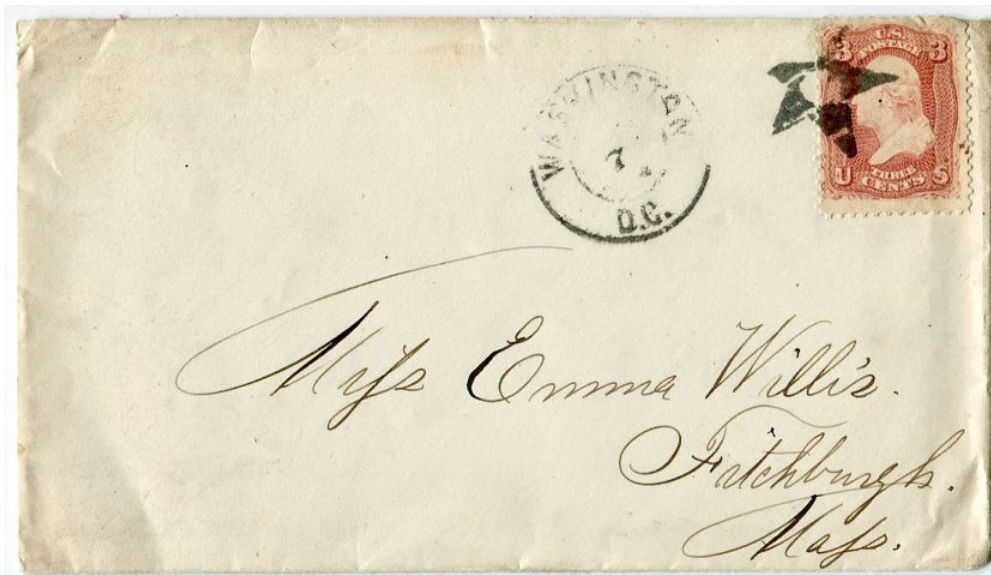 U.S.
POSTAGE
3 3
U S
THREE
CENTS
WASHINGTON
7
D.C.
Miſs Emma Willis.
Fitchburgh.
Maſs.